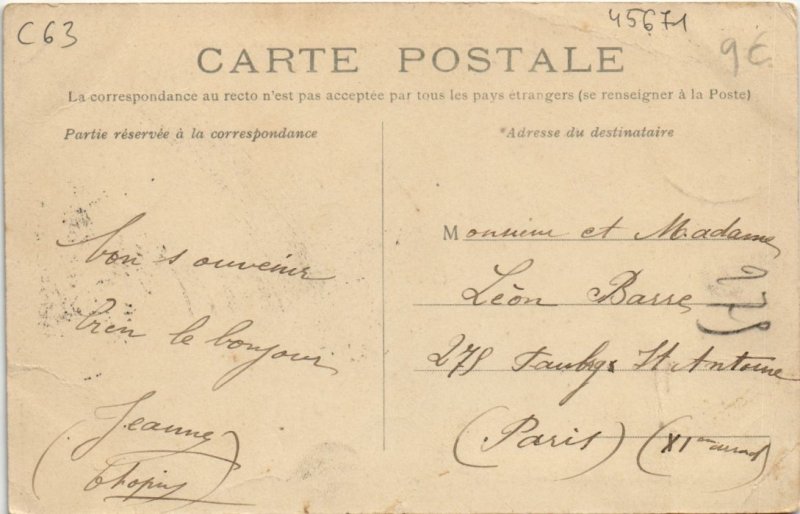 C63
45671
9€
CARTE POSTALE
La correspondance au recto n'est pas acceptée par tous les pays étrangers (se renseigner à la Poste)
Partie réservée à la correspondance
bon souvenir
bien le bonjour
Jeanne
*Adresse du destinataire
Monsieur et Madame
Léon Barre
275 Faubgs St Antoine
(Paris) (XI